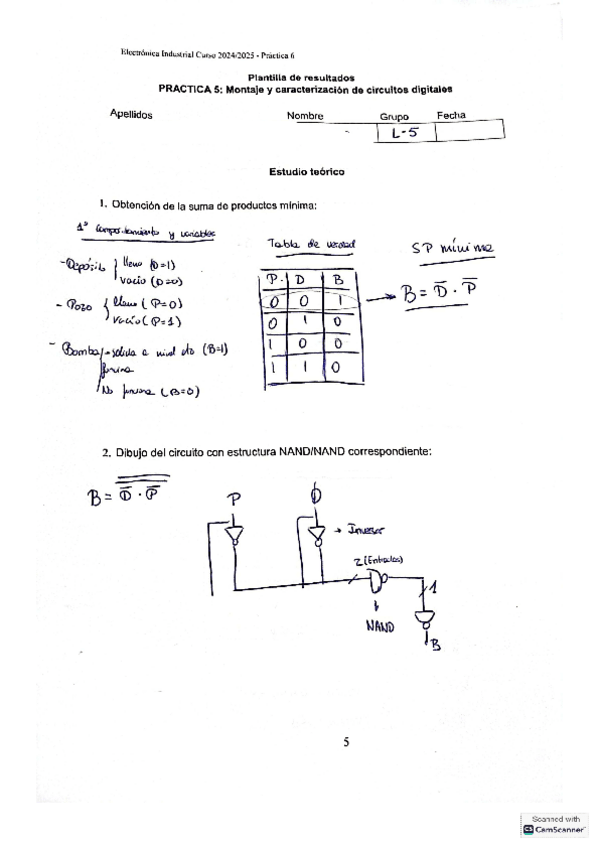 Electrónica Industrial Curso 2024/2025 - Práctica 6
Plantilla de resultados
PRACTICA 5: Montaje y caracterización de circuitos digitales
Apellidos Nombre Grupo Fecha
L-5
Estudio teórico
1. Obtención de la suma de productos mínima:
1º Comportamiento y variables
- Depósito { lleno (D=1)
vacio (D=0)
- Pozo { lleno (P=0)
vacio (P=1)
- Bomba salida a nivel alto (B=1)
funciona
No funciona (B=0)
Tabla de verdad
P D B
0 0 1
0 1 0
1 0 0
1 1 0
SP mínima
B = D̅ · P̅
2. Dibujo del circuito con estructura NAND/NAND correspondiente:
B = D̅ · P̅
P D
→ Inversor
2 (Entradas)
1
NAND
B
5
Scanned with
CS CamScanner